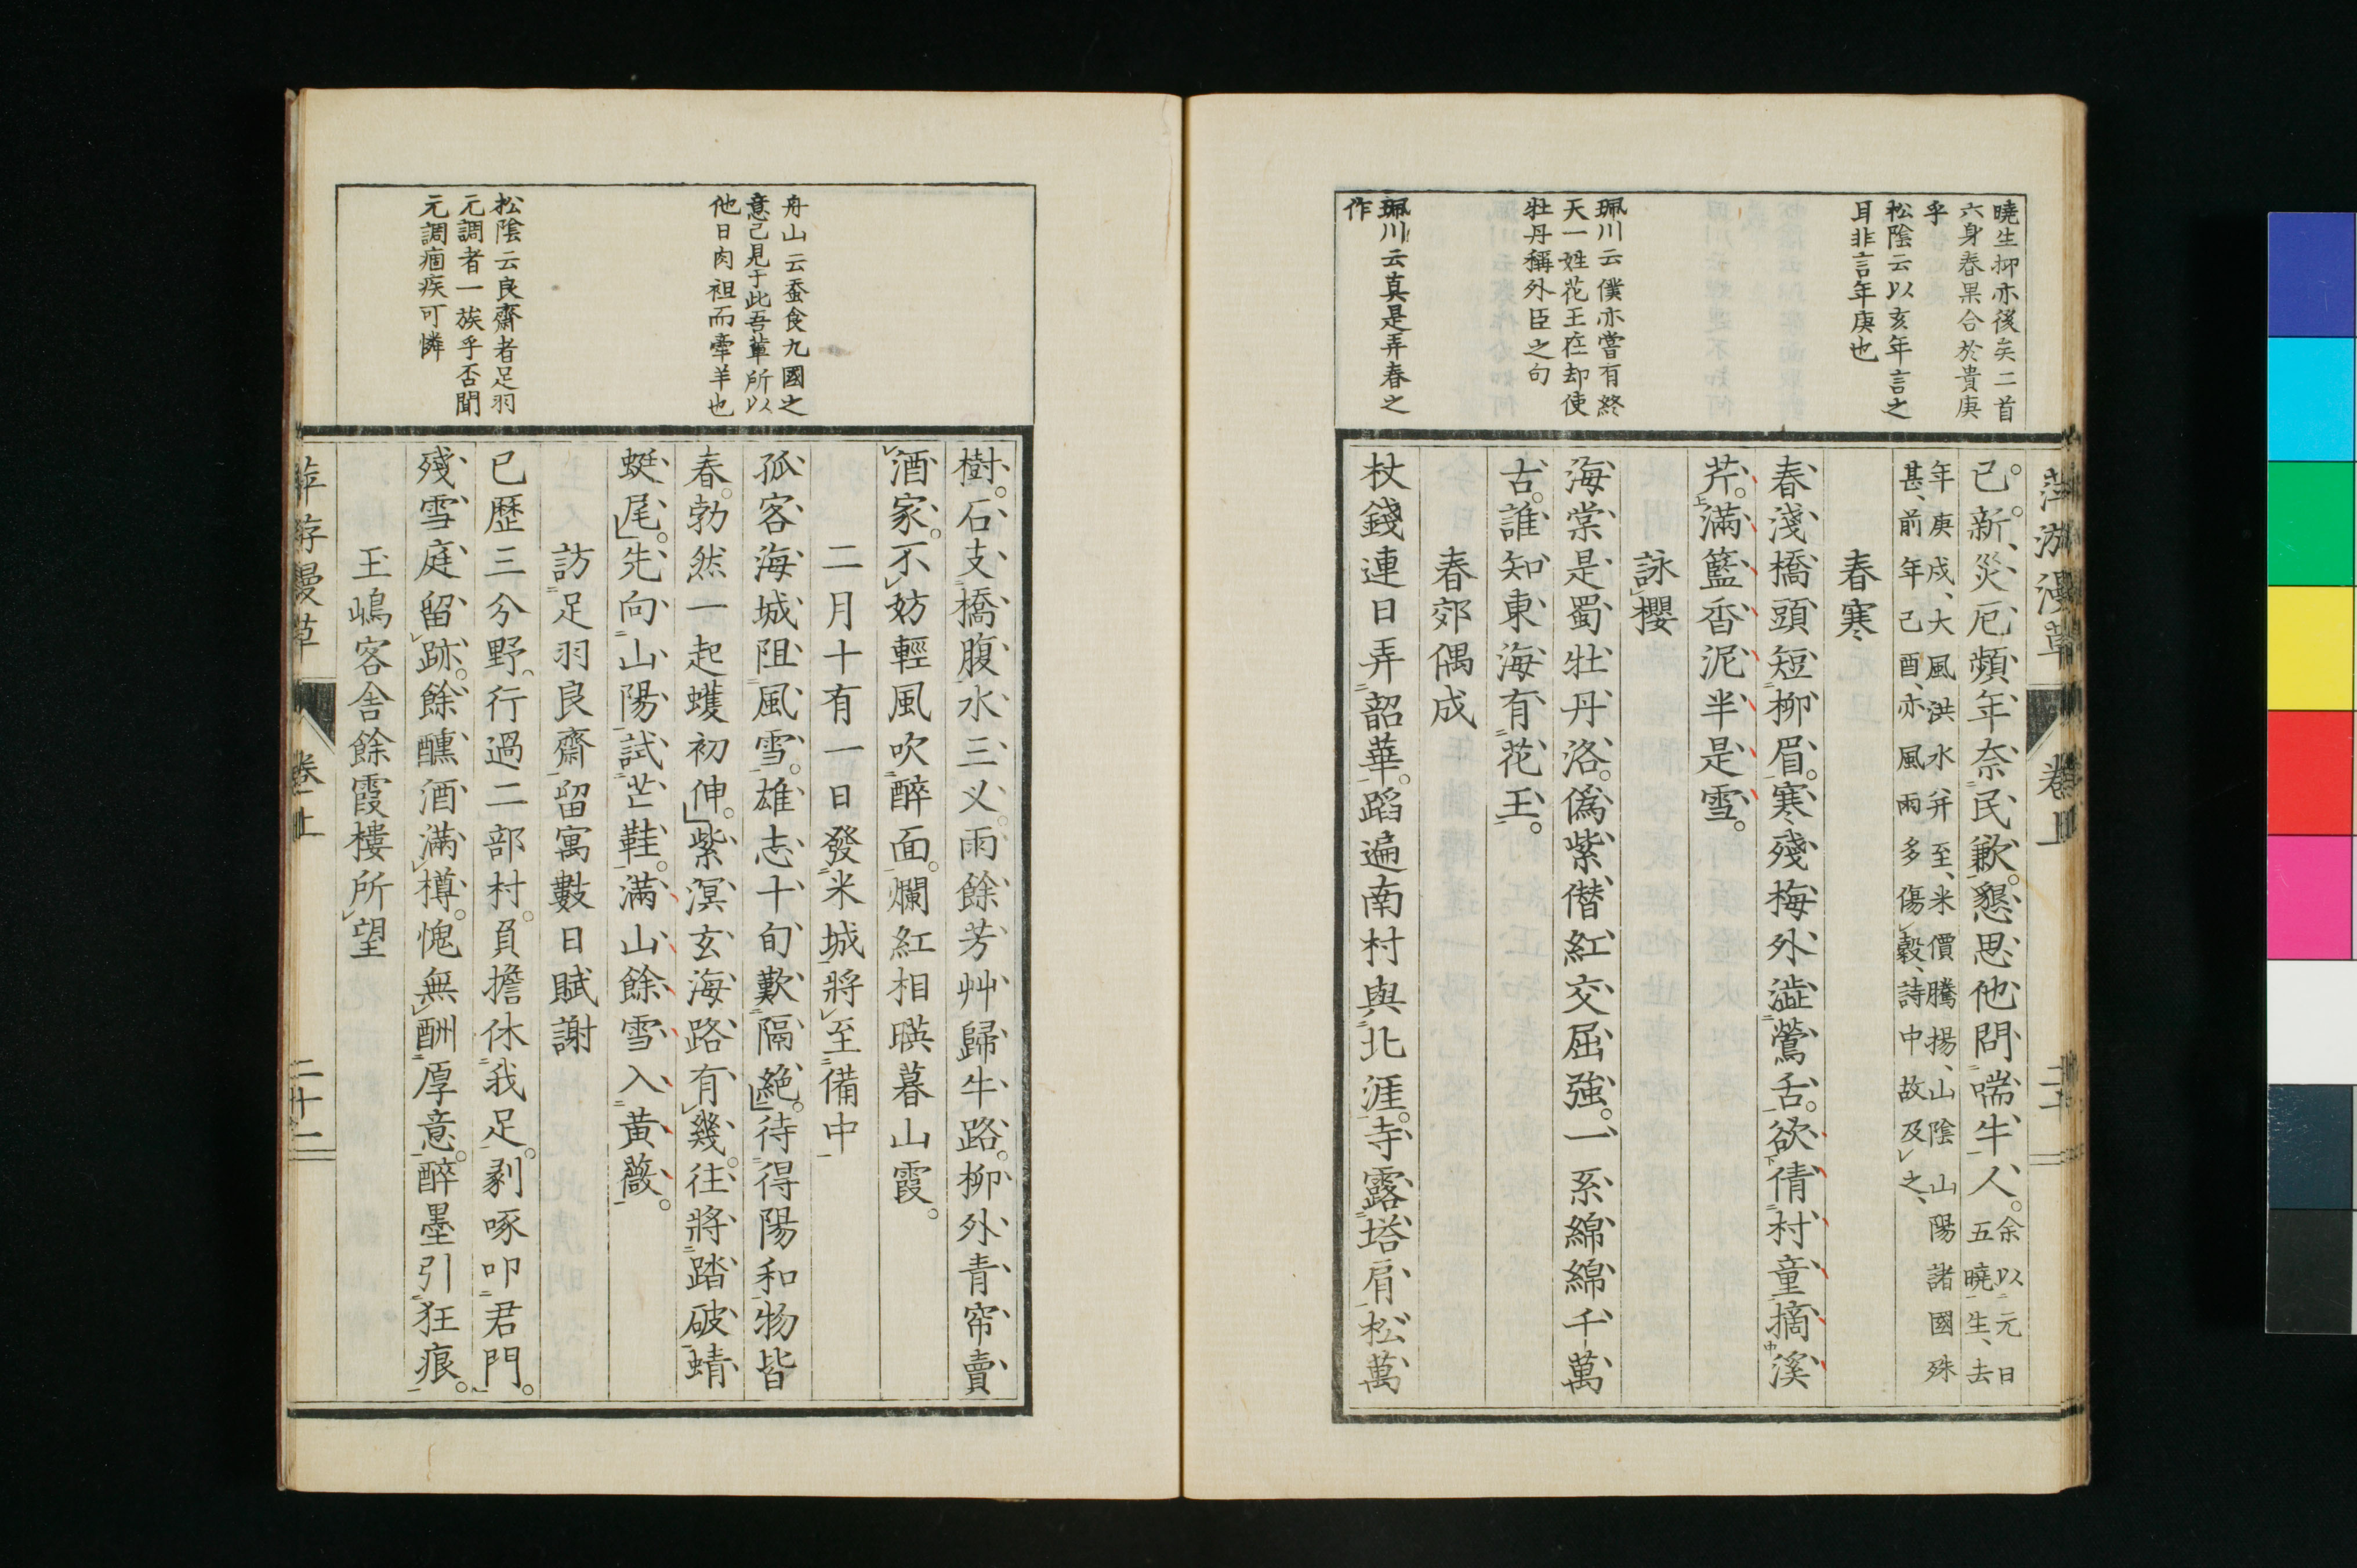 曉生抑亦後矣二首
六身春果合於貴庚
乎
松陰云以亥年言之
耳非言年庚也
珮川云僕亦嘗有終
天一姓花王在却使
牡丹稱外臣之句
珮川云真是弄春之
作
萍游漫草 卷上
已新災厄頻年奈民歉懇思他問喘牛人余以元日
五曉生去
年庚戌大風洪水并至米價騰揚山陰山陽諸國殊
甚前年己酉亦風雨多傷穀詩中故及之
春寒
春淺橋頭短柳眉寒殘梅外澁鶯舌欲倩村童摘溪
芹滿籃香泥半是雪
詠櫻
海棠是蜀牡丹洛偽紫僭紅交屈強一系綿綿千萬
古誰知東海有花王
春郊偶成
杖錢連日弄韶華蹈遍南村與北涯寺露塔肩松萬
舟山云蚕食九國之
意已見于此吾輩所以
他日肉袒而牽羊也
松陰云良齋者足羽
元調者一族乎否聞
元調痼疾可憐
樹石支橋腹水三义雨餘芳艸歸牛路柳外青帘賣
酒家不妨輕風吹醉面爛紅相暎暮山霞
二月十有一日發米城將至備中
孤客海城阻風雪雄志十旬歎隔絶待得陽和物皆
春勃然一起蠖初伸紫溟玄海路有幾往將踏破蜻
蜓尾先向山陽試芒鞋滿山餘雪入黃薇
訪足羽良齋留寓數日賦謝
已歷三分野行過二部村負擔休我足剥啄叩君門
殘雪庭留跡餘醺酒滿樽愧無酬厚意醉墨引狂痕
玉嶋客舎餘霞樓所望
萍游漫草 卷上 二十二